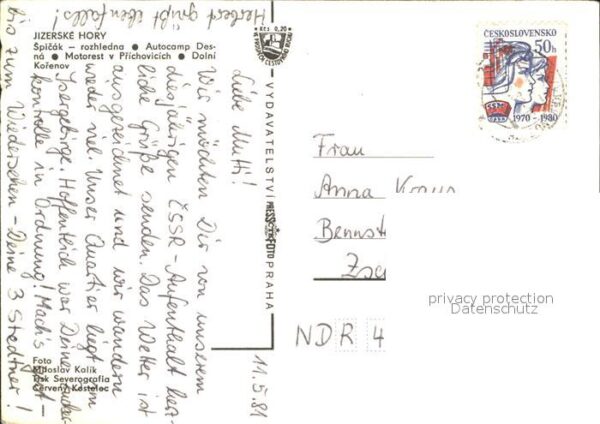 JIZERSKE HORY
Špičák – rozhledna • Autocamp Des-
ná • Motorest v Příchovicích • Dolní
Kořenov
Herbert grüßt ebenfalls!
Liebe Mutti!
Wir möchten Dir von unserem
diesjährigen ČSSR-Aufenthalt herz-
liche Grüße senden. Das Wetter ist
ausgezeichnet und wir wandern
wieder viel. Unser Quartier liegt im
Isergebirge. Hoffentlich war Deine
kontrolle in Ordnung! Mach's gut –
bis zum Wiedersehen – Deine 3 Stedtner!
11.5.81
Foto
Miloslav Kalík
Tisk Severografia
Červený Kostelec
KČS 0,20
VYDAVATELSTVÍ PRESSFOTO PRAHA
ČESKOSLOVENSKO
50h
SSM
1970 - 1980
Frau
Anna
Bennst
Zs
NDR 4
privacy protection
Datenschutz